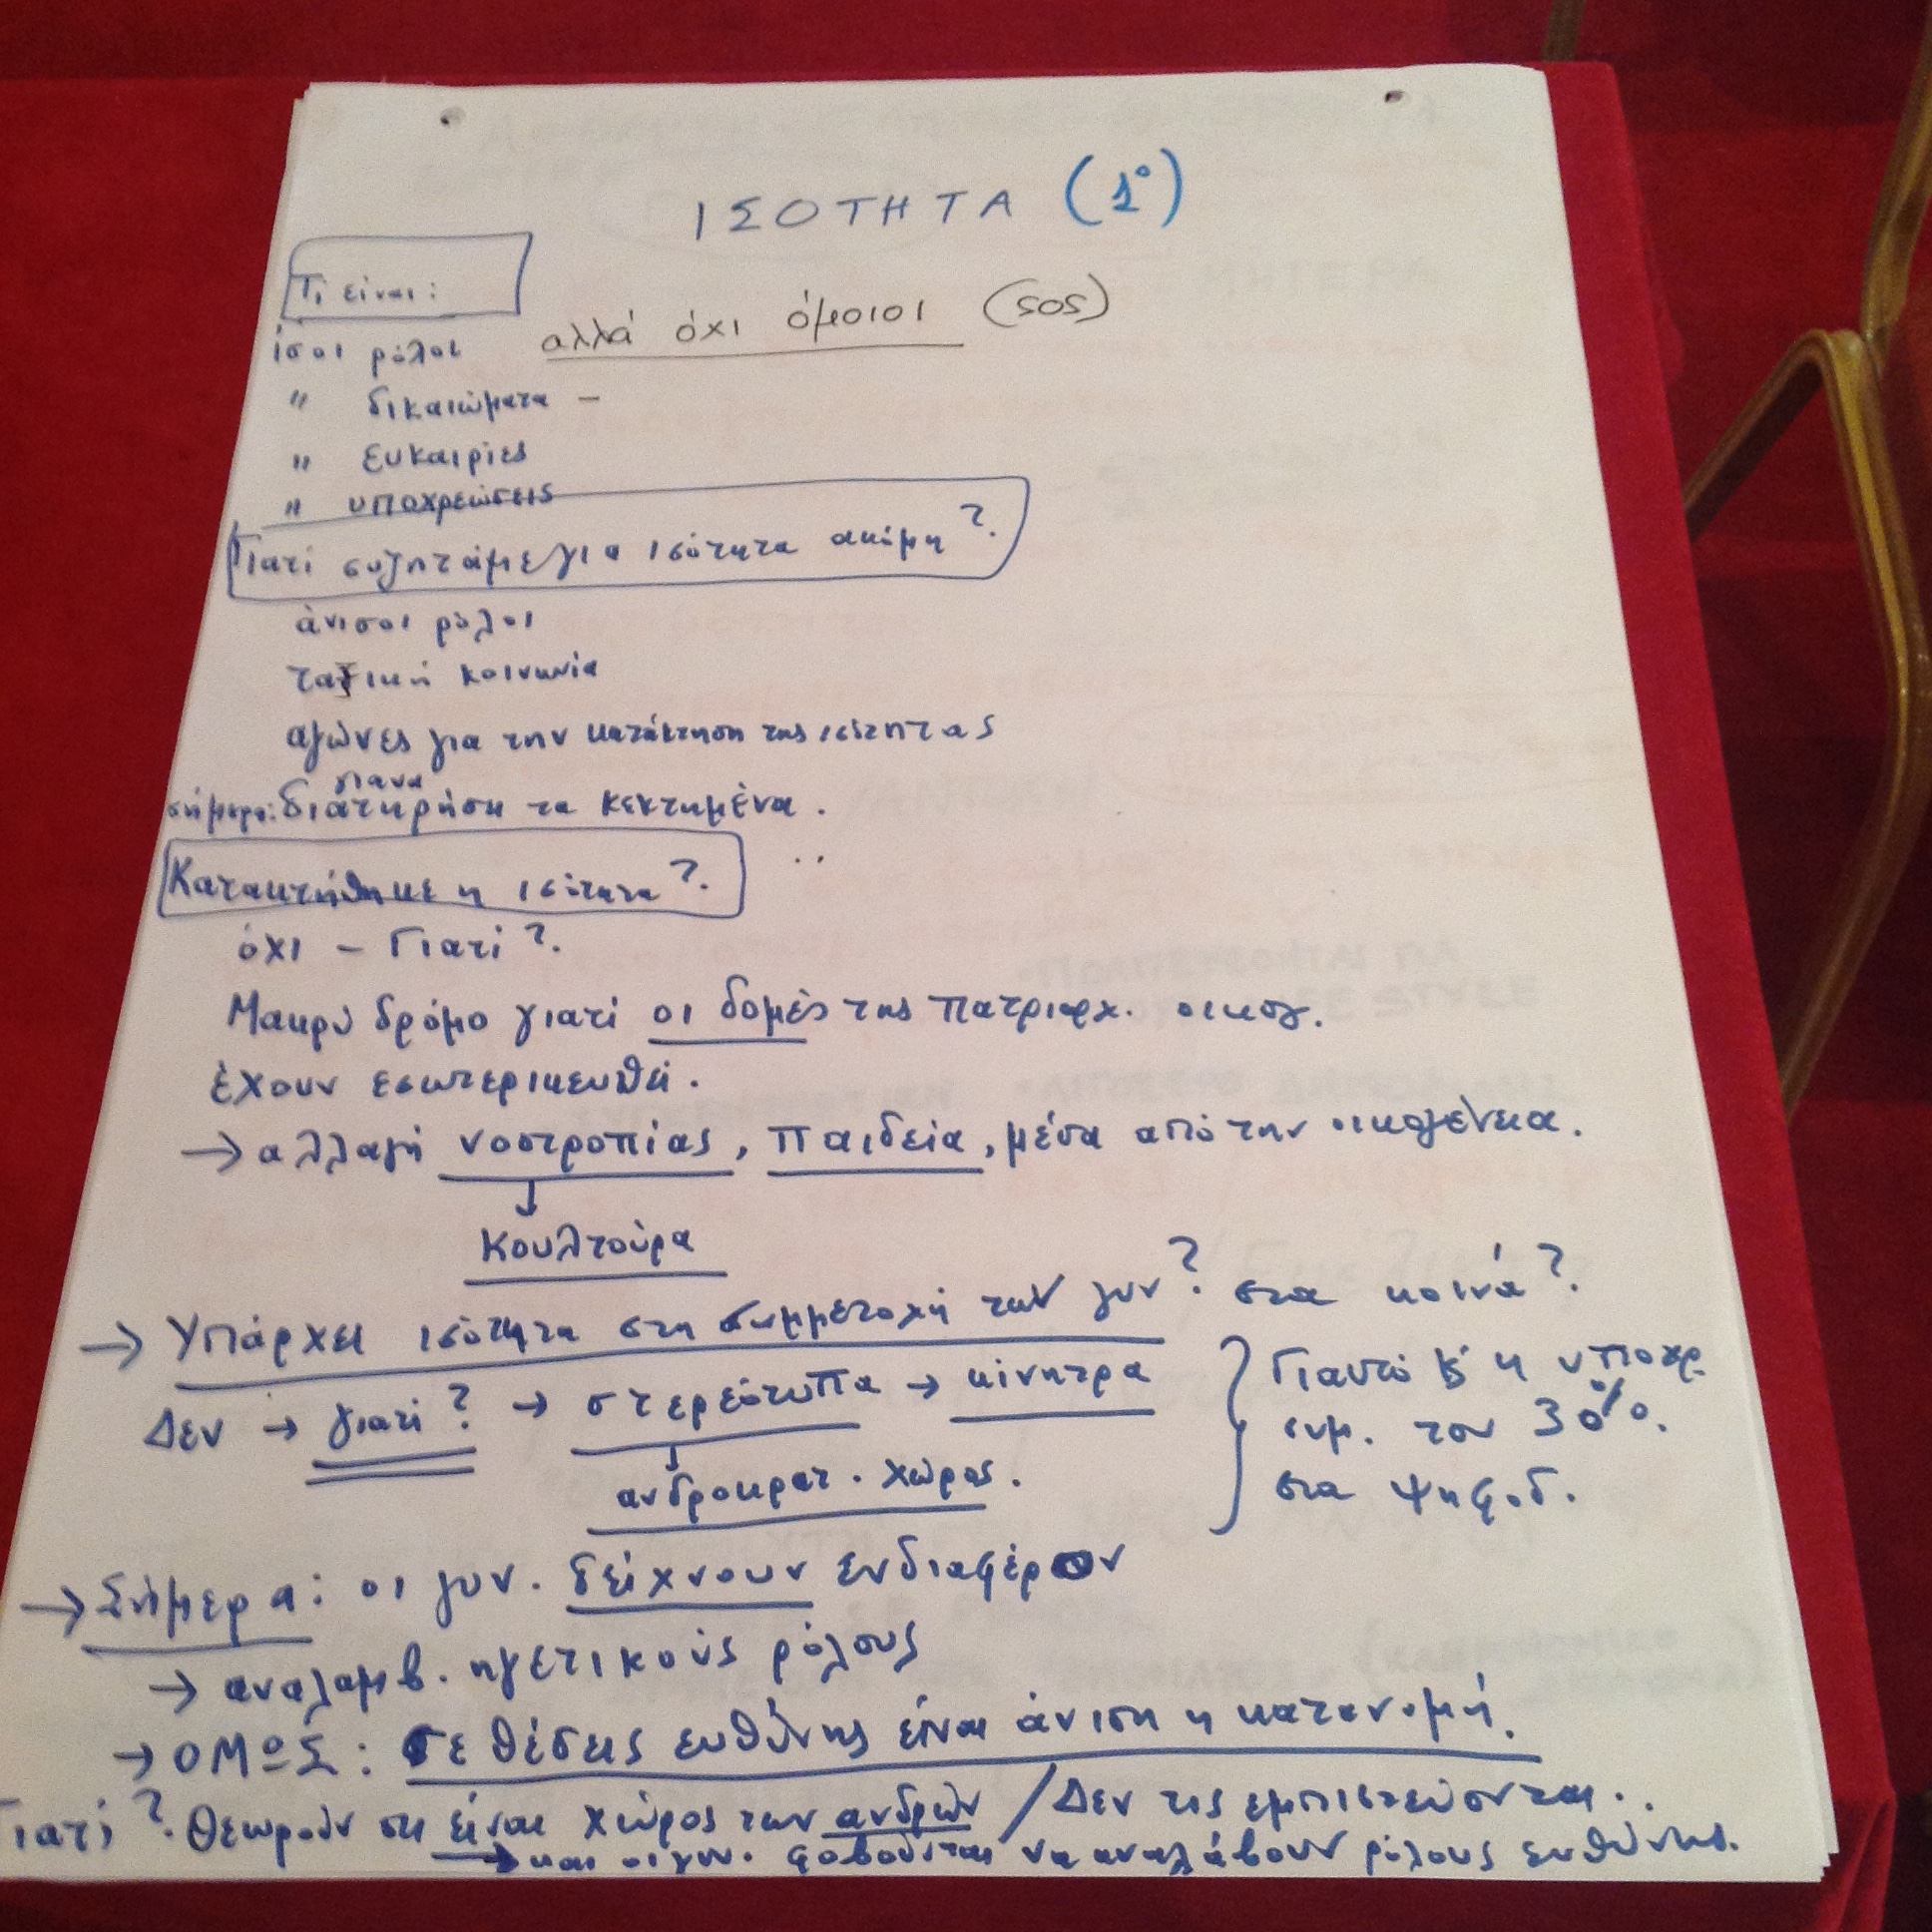 ΙΣΟΤΗΤΑ (1°)
Τι είναι:
ίσοι ρόλοι αλλά όχι όμοιοι (sos)
" δικαιώματα –
" ευκαιρίες
" υποχρεώσεις
Γιατί συζητάμε για ισότητα ακόμη?
άνισοι ρόλοι
ταξική κοινωνία
αγώνες για την κατάκτηση της ισότητας
για να
σήμερα: διατηρήση τα κεκτημένα.
Κατακτήθηκε η ισότητα?
όχι – Γιατί?
Μακρύ δρόμο γιατί οι δομές της πατριαρχ. οικογ.
έχουν εσωτερικευθεί.
→ αλλαγή νοοτροπίας, παιδεία, μέσα από την οικογένεια.
↓
Κουλτούρα
→ Υπάρχει ισότητα στη συμμετοχή των γυν? στα κοινά?
Δεν → γιατί? → στερεότυπα → κίνητρα
↓
ανδροκρατ. χώρος.
Γιαυτό κ' η υποχρ.
συμ. του 30%.
στα ψηφοδ.
→ Σήμερα: οι γυν. δείχνουν ενδιαφέρον
→ αναλαμβ. ηγετικούς ρόλους
→ ΟΜΩΣ: σε θέσεις ευθύνης είναι άνιση η κατανομή.
Γιατί? Θεωρούν οτι είναι χώρος των ανδρών / Δεν τις εμπιστεύονται..
→ και οι γυν. φοβούνται να αναλάβουν ρόλους ευθύνης.